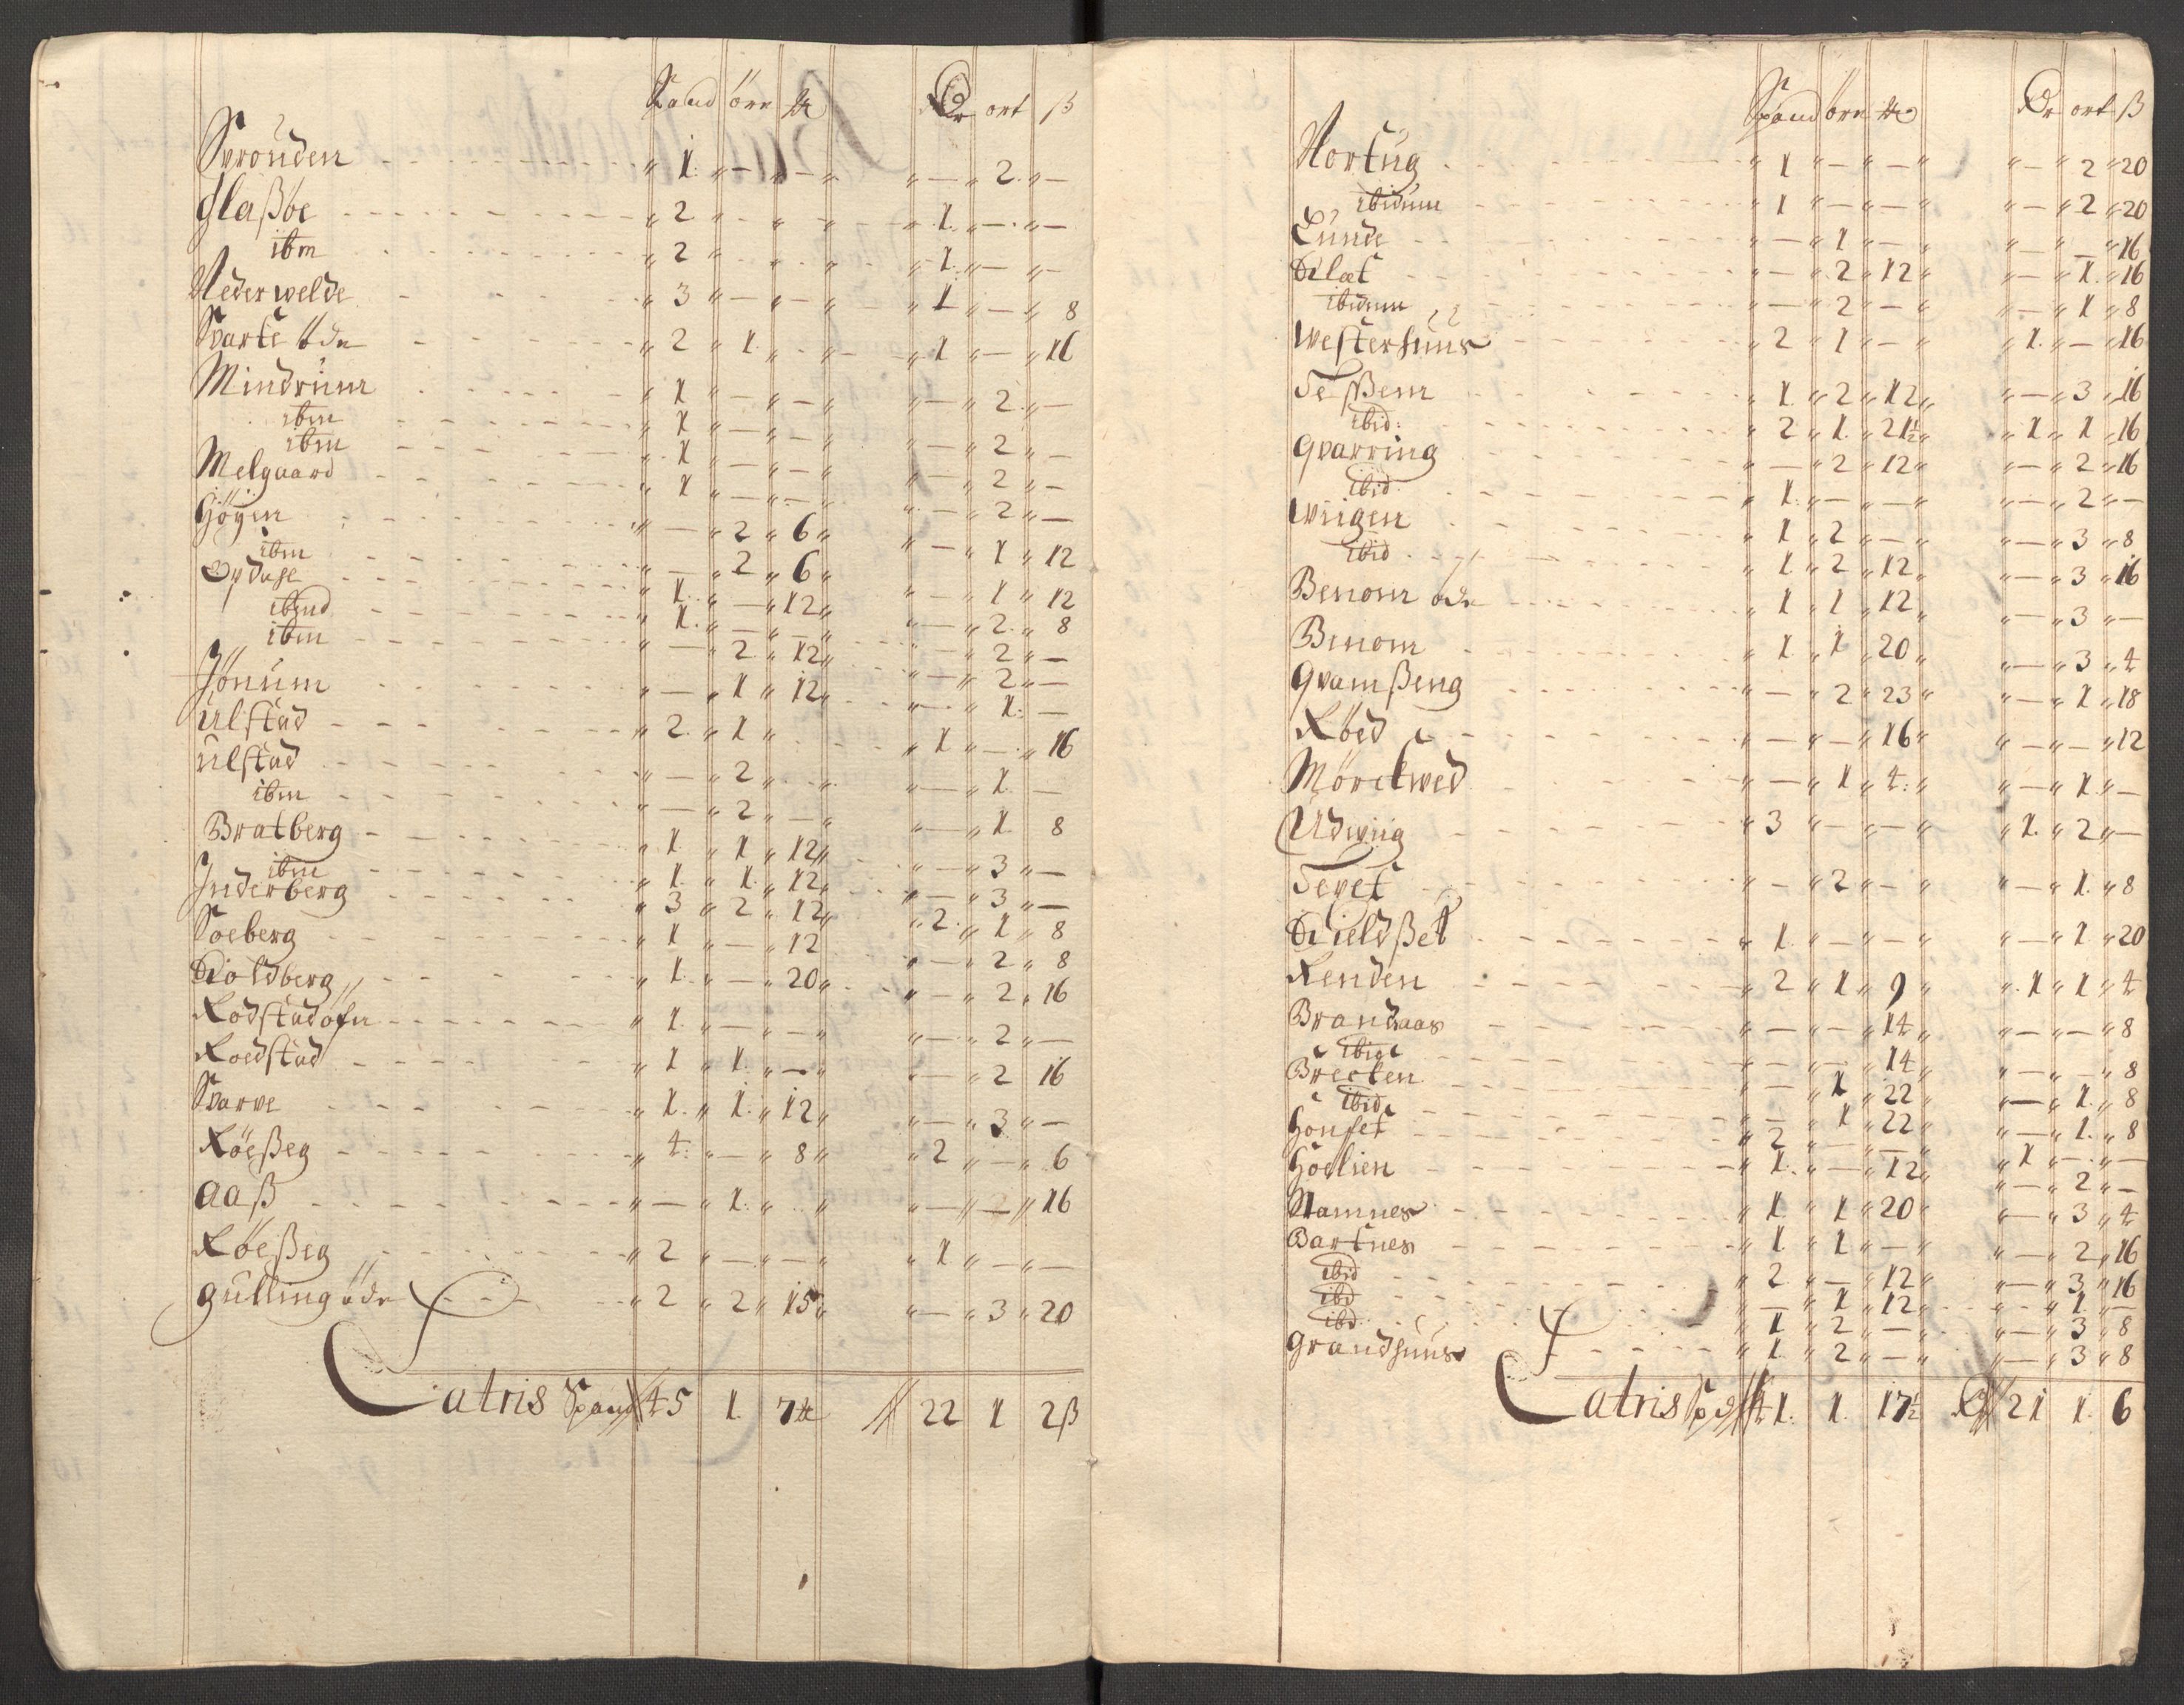 Spand örr ℔ Rdr ort ß
Svrouden " 1. " — " — " " — " 2. " —
Flaßøe " 2 " " " " 1. " — " —
ibm " 2 " " " " 1. " — " —
Nederwelde " 3 " — " — " " 1 " — " 8
Svarte öde " 2 " 1. " " " 1 " — " 16
Mindrüm " 1 " — " — " " — " 2. " —
ibm " 1 " — " — " " — " 2 " —
ibm " 1 " — " — " " — " 2 " —
Melgaard " 1 " — " — " " — " 2 " —
Göÿen " — " 2 " 6 " " — " 1 " 12
ibm " — " 2 " 6 " " — " 1 " 12
Opdahl " 1. " — " 12 " " — " 2. " 8
ibm " 1. " — " — " " — " 2 " —
ibm " — " 2 " 12 " " — " 2 " —
Jönüm " — " 1 " 12 " " — " 1. " —
Ulstad " 2. " 1 " " " 1 " — " 16
Ulstad " — " 2 " " " — " 1. —
ibm " — " 2 " — " " — " 1. 8
Bratberg " 1. " 1 " 12 " " — " 3 " —
ibm " 1. " 1. " 12 " " — " 3 " —
Inderberg " 3 " 2 " 12 " " 2. " 1 " 8
Soeberg " 1 " — " 12 " — " 2 " 8
Kioldberg " 1. " — " 20 " " — " 2 " 16
Rodstadöfn " 1. " — " — " " — " 2 " —
Roedstad " 1 " 1. " — " " — " 2 16
Svarve " 1. " 1. " 12 " " — " 3 " —
Röeßeg " 4. " — " 8 " " 2 " — " 6
Aaß " — " 1. " " " — " — " 16
Röeßeg " 2 " — " — " " 1 " — " —
Gülling öde " 2 " 2 " 15 " " — " 3 " 20
Latris Spand 45 1. 7 ℔ 22 1 2ß
Spand örr ℔ Rdr ort ß
Nortüg " 1 " — " — " " — " 2 " 20
ibidüm " 1 " — " — " " — " 2 " 20
Lünde " — " 1 " — " " — " — " 16
Klæt " — " 2 " 12 " " — " 1. " 16
ibidüm " — " 2 " — " " — " 1 " 8
Westerhüüs " 2 " 1 " — " " 1. " — " 16
Teßem " 1. " 2 " 12 " " — " 3 " 16
ibid: " 2 " 1. " 21½ " " 1 " 1 " 16
Qvarring " — " 2 " 12 " " — " 2 " 16
ibid " 1. " — " — " " — " 2 " —
Wiigen " 1 " 2 " — " " — " 3 " 8
ibid " 1 " 2 " 12 " " — " 3 " 16
Benom öde " 1 " 1 " 12 " " — " 3 " —
Benom " 1. " 1 " 20 " " — " 3 " 4
Qvamßeng " — " 2 " 23 " " — " 1 " 18
Röed " — " — " 16 " " — " — " 12
Mörckwed " — " 1 " 4: " " — " 1. " —
Udwiig " 3 " — " — " " 1. " 2 " —
Tevet " — " 2 " — " " — " 1. " 8
Kieldßet " 1. " — " — " " — " 1 " 20
Renden " 2 " 1 " 9 " " 1 " 1 " 4
Brandaas " — " — " 14 " " — " — " 8
ibid " — " — " 14 " " — " — " 8
Brecken " — " 1 " 22 " " — " 1. " 8
ibid " — " 1 " 22 " " — " 1. " 8
Hönset " 2 " — " — " " 1 " — " —
Höelien " 1. " — " 12 " " — " 2 " —
Namnes " 1. " 1 " 20 " " — " 3 " 4
Bartnes " 1. " 1 " — " " — " 2 " 16
ibid " 2. " — " 12 " " — " 3 " 16
ibd " — " 1 " 12 " " — " 1. " —
ibd " 1 " 2 " — " " — " 3 " 8
Grandhüüs " 1. " 2 " — " " — " 3 " 8
Latris Spd 41. 1. 17½ Rd 21 1. 6